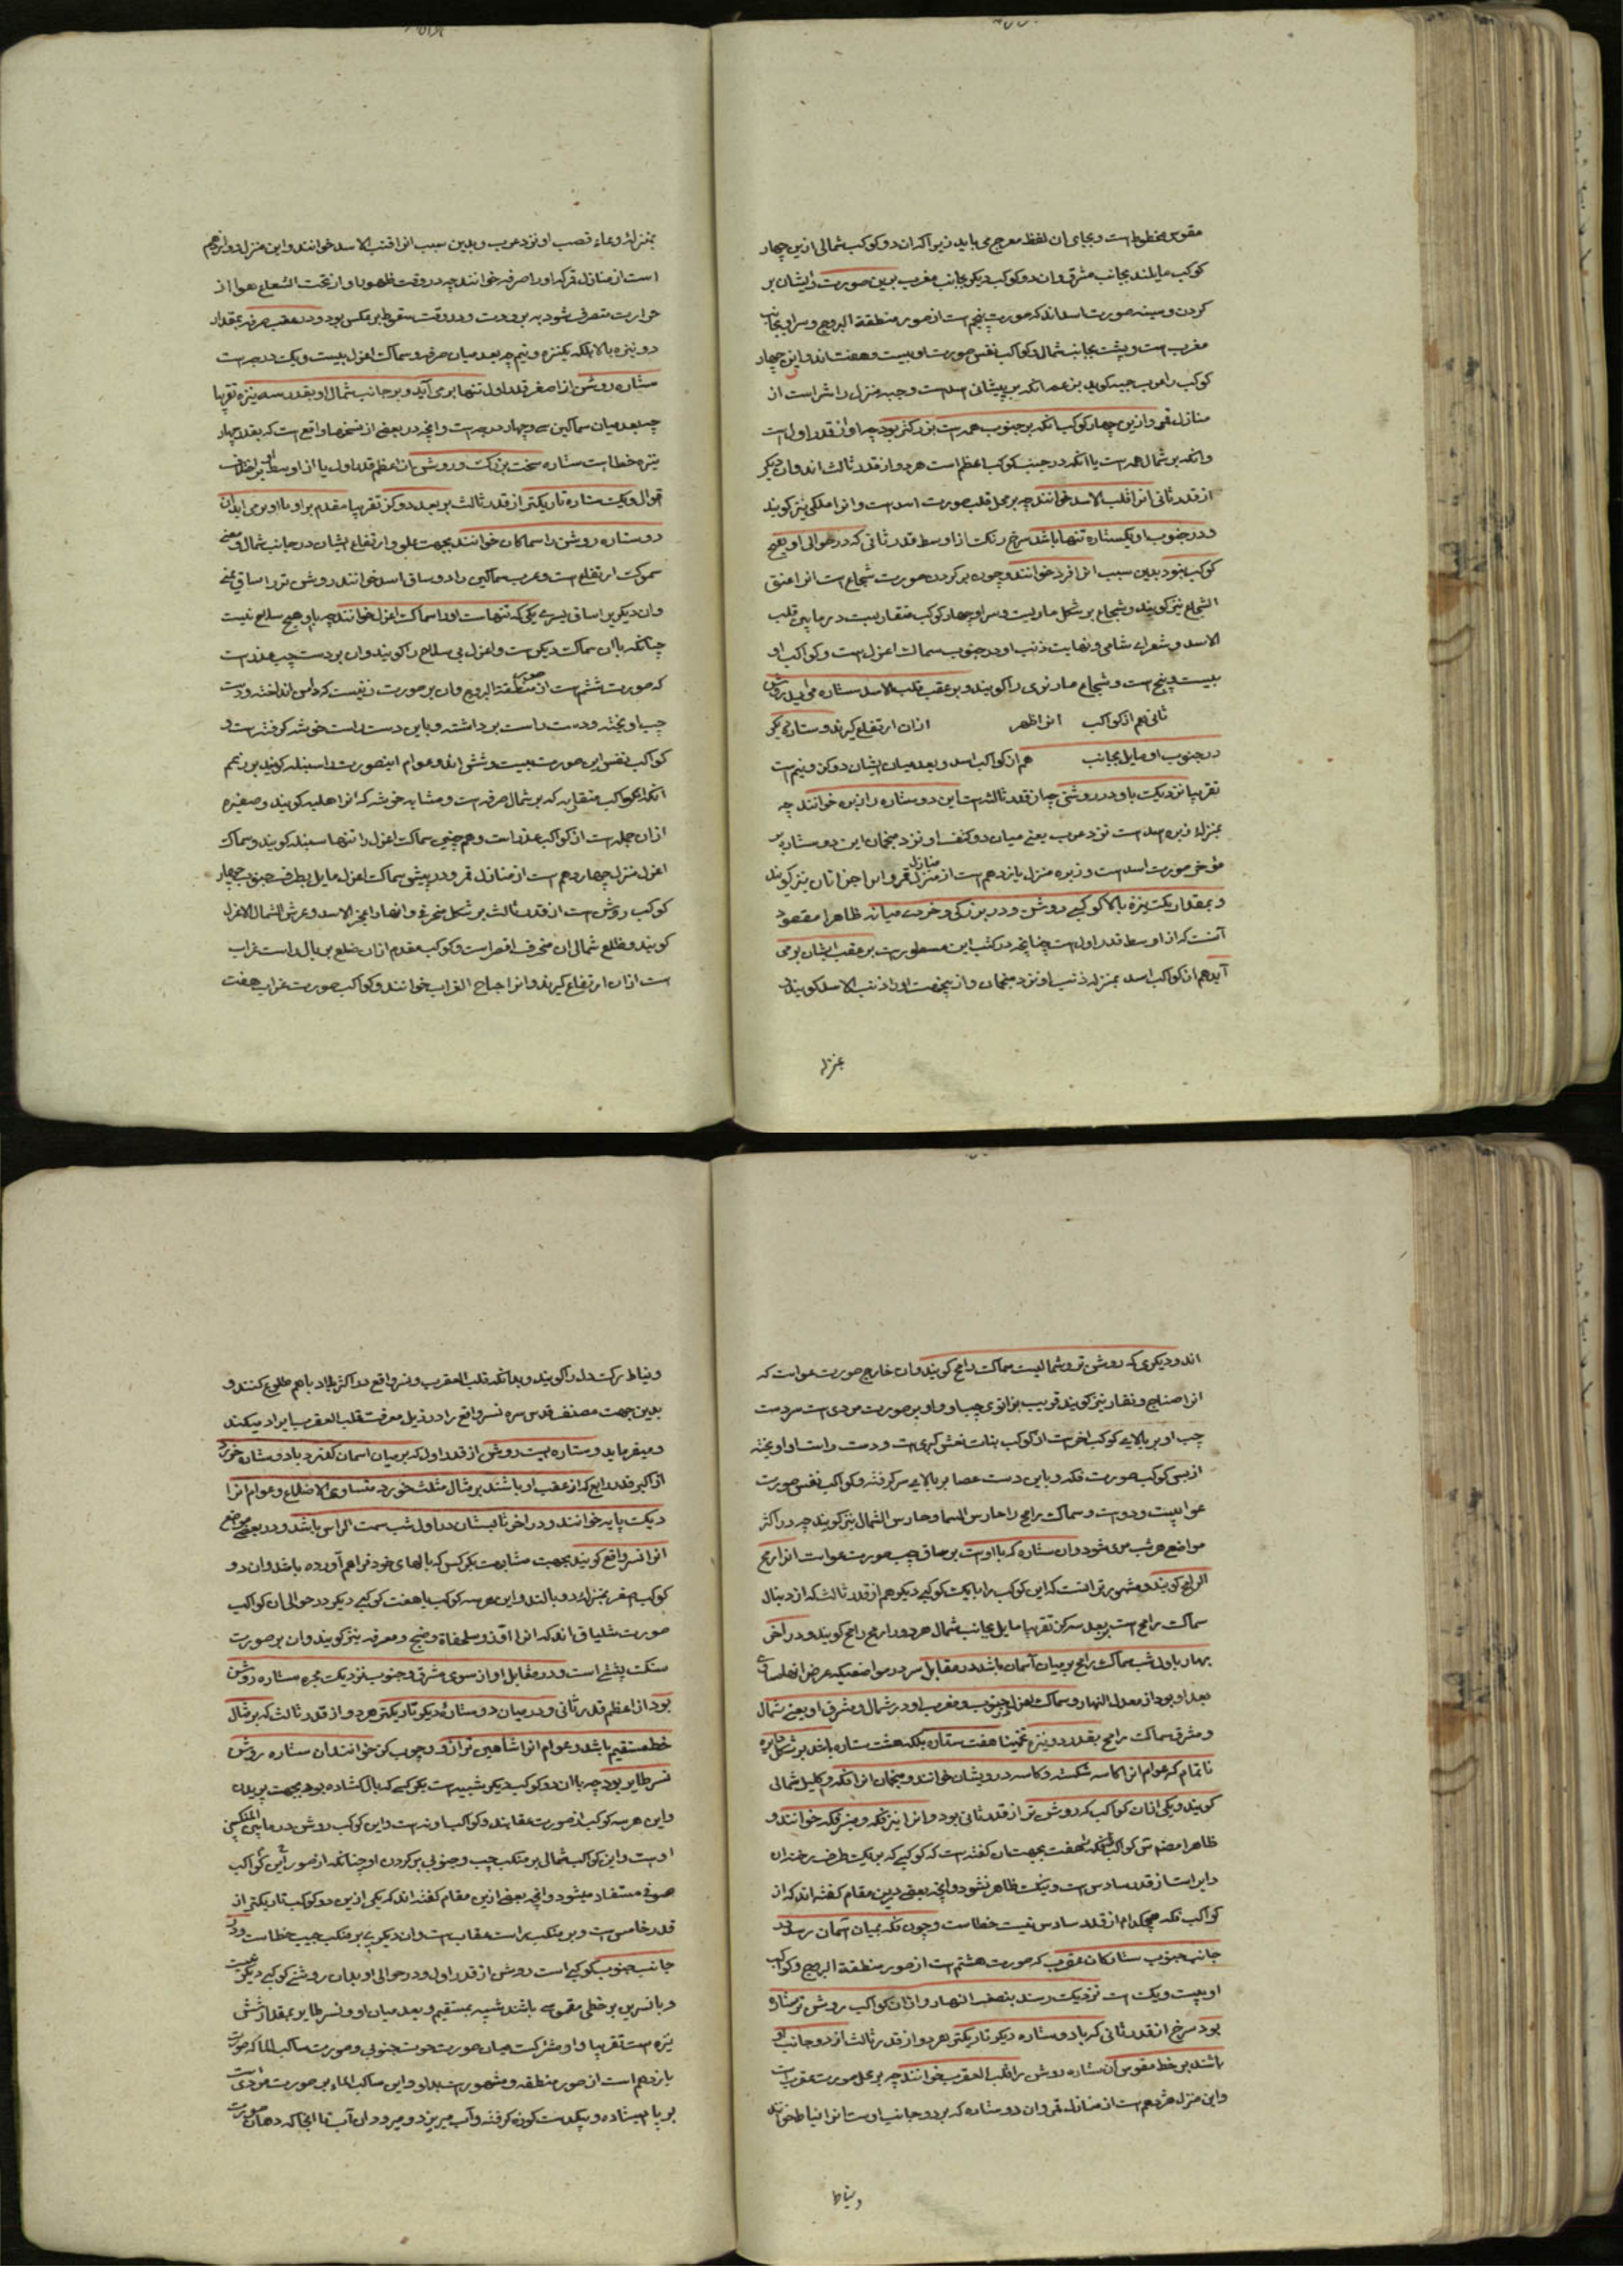 مقوس مخطوط است و بجای ان لفظ معرج می باید زیرا که ان دو کوکب شمالی ازین چهار
کوکب مایلند بجانب مشرق و ان دو کوکب دیکر بجانب مغرب برین صورت و ایشان بر
کردن و سینه صورت اسد اند که صورت پنجم است از صور منطقة البروج و سر او بجانب
مغرب است و پشت بجانب شمال و کواکب نفس صورت او بیست و هفت اند و این چهار
کوکب را عرب جبهه کویند بزعم انکه بر پیشانی اسد است و جبهه منزل دهم است از
منازل قمر و ازین چهار کوکب انکه بر جنوب همه است بزرکتر بود چه او از قدر اول است
و انکه بر شمال همه است یا انکه در جنب کوکب اعظم است هر دو از قدر ثالث اند و ان دیکر
از قدر ثانی انرا قلب الاسد خوانند چه بر محل قلب صورت اسد است و انرا ملکی نیز کویند
و در جنوب او یکستاره تنها باشد سرخ رنک از اوسط قدر ثانی که در حوالی او هیچ
کوکب نبود بدین سبب انرا فرد خوانند و چون بر کردن صورت شجاع است انرا عنق
الشجاع نیز کویند و شجاع بر شکل ماریست و سر او چهار کوکب متقاربست در مابین قلب
الاسد و شعرای شامی و نهایت ذنب او در جنوب سماک اعزل است و کواکب او
بیست و پنج است و شجاع مار نوی را کویند و بر عقب قلب الاسد ستاره می اید روشن
ثانی هم از کواکب انرا ظهر ازان ارتفاع کیرند و ستاره دیکر
در جنوب او مایل بجانب هم از کواکب اسد و بعد میان ایشان دو کز و نیم است
تقریبا نزدیک باو در روشنی چه از قدر ثالثست این دو ستاره را زبره خوانند چه
بمنزلهٔ زبره اسد است نزد عرب یعنی میان دو کتف او نزد منجمان این دو ستاره بر
مؤخر صورت اسد است و زبره منزل یازدهم است از منازل قمر و انرا خراتان نیز کویند
و بمقدار یک نیزه بالا کوکبی روشن و در بزرکی و خردی میانه ظاهرا مقصود
آنست که از اوسط قدر اول است چنانچه در کتب این مسطورست بر عقب ایشان بر می
آید هم از کواکب اسد بمنزلهٔ ذنب او نزد منجمان و از اینجهت او را ذنب الاسد کویند و
بمنزله
بمنزلهٔ وعاء قضیب او نزد عرب و بدین سبب انرا قنب الاسد خوانند و این منزل دوازدهم
است از منازل قمر که او را صرفه خوانند چه در وقت ظهور او از تحت الشعاع هوا از
حرارت متصرف شود به برودت و در وقت سقوط بر عکس بود و در عقب صرفه بمقدار
دو نیزه بالا بلکه یکنیزه و نیم چه بعد میان صرفه و سماک اعزل بیست و یک درجه است
ستاره روشن از اصغر قدر اول تنها بر می آید و بر جانب شمال او بقدر سه نیزه تقریبا
چه بعد میان سماکین سی و چهار درجه است و انچه در بعضی از نسخها واقع است که بقدر چهار
نیزه خطا است ستاره سخت بزرک و روشن از اعظم قدر اول یا از اوسط ان بر اختلاف
اقوال و یک ستاره تاریکتر از قدر ثالث بر بعد دو کز تقریبا مقدم بر او با او بر می اید ان
دو ستاره روشن را سماکان خوانند بجهت علو و ارتفاع ایشان در جانب شمال و معنی
سموک ارتفاع است و عرب سماکین را دو ساق اسد خوانند روشن تر را ساق یمنی
و ان دیکر را ساق یسری یکی که تنهاست او را سماک اعزل خوانند چه با او هیچ سلاح نیست
چنانکه با ان سماک دیکر است و اعزل بی سلاح را کویند و ان بر دست چپ عذر است
که صورت ششم است از صور منطقة البروج و ان بر صورت زنیست که دامن انداخته و دست
چپ اویخته و دست راست بر داشته و باین دست راست خوشه کرفته است و
کواکب نفس این صورت بیست و شش اند و عوام اینصورت را سنبله کویند بر زعم
انکه کواکب متقاربه که بر شمال صرفه است و مشابه خوشه که انرا هلبه کویند و صغیره
ازان جمله است از کواکب عذراست و هم چنین سماک اعزل را تنها سنبله کویند و سماک
اعزل منزل چهاردهم است از منازل قمر و در پیش سماک اعزل مایل بطرف جنوب چهار
کوکب روشن است از قدر ثالث بر شکل منحرفی و انها را عجز الاسد و عرش السماک الاعزل
کویند و ضلع شمالی ان منحرف اقصر است و کوکب مقدم ازان ضلع بر بال راست غراب
است ازان ارتفاع کیرند و انرا جناح الغراب خوانند و کواکب صورت غراب هفت
اند و دیکری که روشن تر و شمالیست سماک رامح کویند و ان خارج صورت عواست که
انرا صناج و نقار نیز کویند قریب بزانوی چپ او و او بر صورت مردی است سر دست
چپ او بر بالای کوکب اخر است از کوکب بنات نعش کبری است و دست راست او اویخته
از پس کوکب صورت فکه و باین دست عصا بر بالای سر کرفته و کواکب نفس صورت
عوا بیست و دو است و سماک رامح را حارس السما و حارس الشمال نیز کویند چه در اکثر
مواضع هر شب مرئی شود و ان ستاره که با اوست بر ساق چپ صورت عواست انرا رمح
الرامح کویند و مشهورتر انست که این کوکب را با یک کوکبی دیکر هم از قدر ثالث که از دنبال
سماک رامح است ببعد سه کز تقریبا مایل بجانب شمال هر دو را رمح رامح کویند و در اخر
بهار باول شب سماک رامح بر میان آسمان باشد در مقابل سر در مواضعیکه عرض انها مساوی
بعد او بود از معدل النهار و سماک اعزل جنوب و مغرب او در شمال و مشرق او یعنی شمال
و مشرق سماک رامح بقدر دو نیزه تخمینا هفت ستاره بلکه هشت ستاره باشد بر شکل دایره
ناتمام که عوام انرا کاسه شکسته و کاسه درویشان خوانند و منجمان انرا فکه و اکلیل شمالی
کویند و یکی ازان کواکب که روشن تر از قدر ثانی بود و انرا نیر فکه و منیر فکه خوانند و
ظاهرا مصنف کواکب فکه هفت بجهت ان کفته است که کوکبی که بر یک طرف رخنه ان
دایر است از قدر سادس است و نیک ظاهر نشود و انچه بعضی درین مقام کفته اند که از
کواکب فکه هیچکدام از قدر سادس نیست خطاست و چون فکه بمیان آسمان رسد در
جانب جنوب ستارکان عقرب که صورت هشتم است از صور منطقة البروج و کواکب
او بیست و یک است نزدیک رسند بنصف النهار و ازان کواکب روشن تر ستاره
بود سرخ از قدر ثانی که با دو ستاره دیکر تاریکتر هر دو از قدر ثالث از دو جانب او
باشند بر خط مقوس ان ستاره روشن را قلب العقرب خوانند چه بر محل صورت عقربست
و این منزل هژدهم است از منازل قمر و ان دو ستاره که بر دو جانب اوست انرا نیاط خوانند
و نیاط
و نیاط رک دل را کویند و بدانکه قلب العقرب و نسر واقع در اکثر بلاد باهم طلوع کنند و
بدین جهت مصنف قدس سره نسر واقع را در ذیل معرفت قلب العقرب ایراد میکند
و میفرماید و ستاره بیست روشن از قدر اول که بر میان اسمان کذرد با دو ستاره خورد
از اکبر قدر رابع که از عقب او باشند بر مثال مثلث خورد متساوی الاضلاع و عوام انرا
دیک پایه خوانند و در اخر تابستان در اول شب سمت الراس باشد و در بعضی مواضع
انرا نسر واقع کویند بجهت مشابهت بکرکس که بالهای خود فراهم آورده باشد و ان دو
کوکب اصغر بمنزلهٔ دو بالند و این هر سه کوکب با هفت کوکبی دیکر در حوالی ان کواکب
صورت شلیاق اند که انرا اوز و سلحفاة و صنج و معزفه نیز کویند و ان بر صورت
سنک پشتی است و در مقابل او از سوی مشرق و جنوب نزدیک مجره ستاره روشن
بود از اعظم قدر ثانی و در میان دو ستارهٔ دیکر تاریکتر هر دو از قدر ثالث که بر مثال
خط مستقیم باشد و عوام انرا شاهین ترازو و چوب کز خوانند ان ستاره روشن
نسر طایر بود چه با ان دو کوکب دیکر شبیه است بکرکسی که بال کشاده بود بجهت پریدن
و این هر سه کوکب از صورت عقابند و کواکب او نه است و این کوکب روشن در مابین المنکبین
اوست و این کواکب شمالی بر منکب چپ و جنوبی بر کردن او چنانکه از صور کواکب
صوفی مستفاد میشود و انچه بعضی ازین مقام کفته اند که یکی ازین دو کوکب تاریکتر از
قدر خامس است و بر منکب راست عقاب است و ان دیکری بر منکب چپ خطاست و در
جانب جنوب کوکبی است روشن از قدر اول و در حوالی او بدان روشنی کوکبی دیکر نیست
و با نسرین بر خطی مقوس باشند شبیه بمستقیم و بعد میان او و نسر طایر بمقدار شش
نیزه است تقریبا و او مشترکست میان صورت حوت جنوبی و صورت ساکب الما که صورت
یازدهم است از صور منطقه و مشهورست بدلو و این ساکب الماء بر صورت مردی است
بر پا ایستاده و بیکدست کوزه کرفته و آب میریزد و میرود ان آب تا انجا که دهان صورت